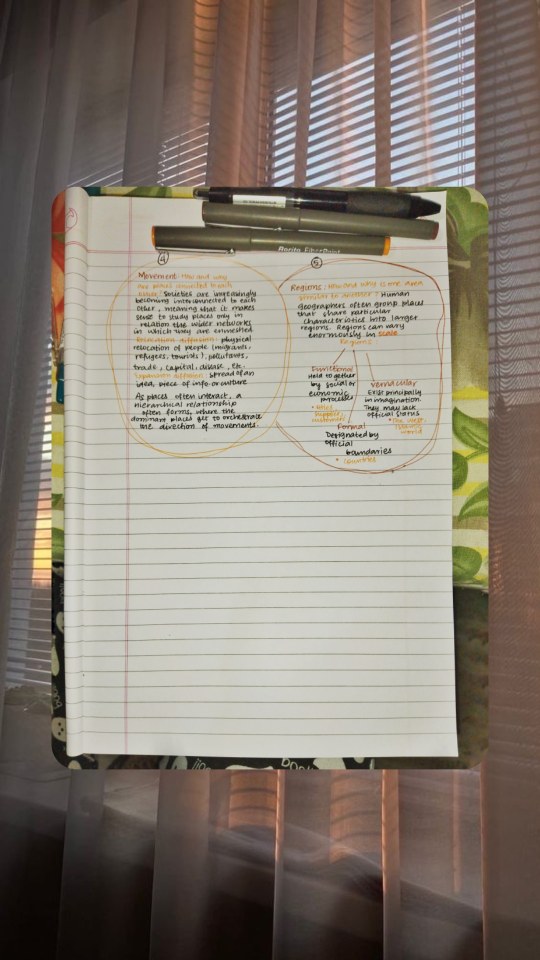 Berol FiberPoint
4
Movement: How and why
are places connected to each
other? Societies are increasingly
becoming interconnected to each
other, meaning that it makes
sense to study places only in
relation the wider networks
in which they are enmeshed.
Relocation diffusion: physical
relocation of people (migrants,
refugees, tourists), pollutants,
trade, capital, disease, etc.
Expansion diffusion: spread of an
idea, piece of info or culture
As places often interact, a
hierarchical relationship
often forms, where the
dominant places get to orchestrate
the direction of movements.
5
Regions: How and why is one area
similar to another? Human
geographers often group places
that share particular
characteristics into larger
regions. Regions can vary
enormously in scale.
Regions
Functional
Held together
by social or
economic
processes
Formal
Designated by
official
boundaries
• countries
Vernacular
Exist principally
in imagination.
They may lack
official status
world